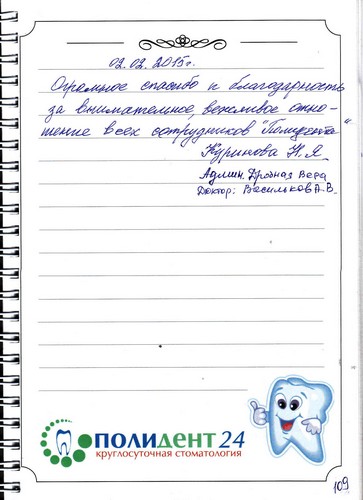 02.02.2015г.
Огромное спасибо и благодарность
за внимательное, вежливое отно-
шение всех сотрудников "Полидента"
Куринова Н.Я.
Админ. Дрозная Вера
Доктор: Васильков А.В.
ПОЛИДЕНТ 24
круглосуточная стоматология
109